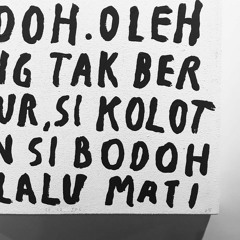 DOH. OLEH
NG TAK BER
UR, SI KOLOT
N SI BODOH
LALU MATI